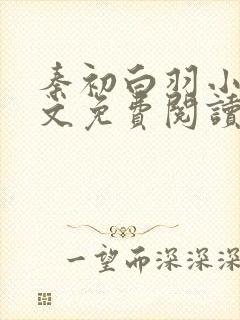 秦初白羽小
文免費閱讀
一望而深深深